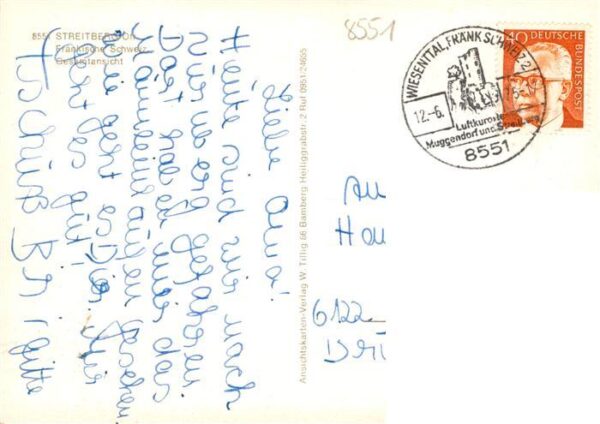 8551 STREITBERG
Fränkische Schweiz
Gesamtansicht
Liebe Oma!
Heute sind wir nach
Nürnberg gefahren
Dort haben wir das
gesehen
Wie geht es Dir. Mir
geht es gut!
Tschüß Brigitte
Ansichtskarten-Verlag W. Tillig 86 Bamberg Heiliggrabstr. 2 Ruf 0951/24635
8551
WIESENTTAL, FRÄNK SCHWEIZ 2
12.-6.
Luftkurorte
Muggendorf und Streitberg
8551
40 DEUTSCHE
BUNDESPOST
An
6122